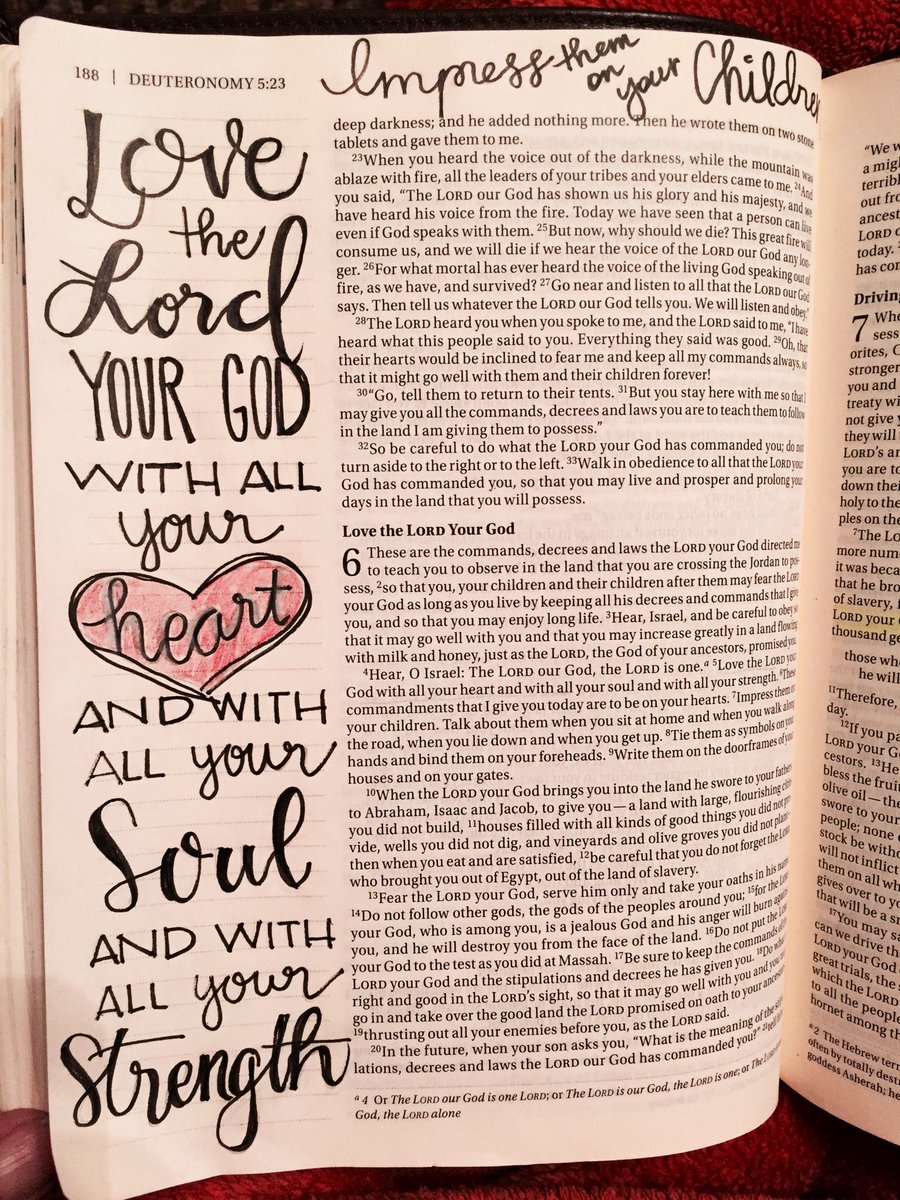 188 | DEUTERONOMY 5:23
Impress them on your Childre
Love
the
Lord
YOUR GOD
WITH ALL
your
heart
AND WITH
ALL your
Soul
AND WITH
ALL your
Strength
deep darkness; and he added nothing more. Then he wrote them on two stone
tablets and gave them to me.
23When you heard the voice out of the darkness, while the mountain was
ablaze with fire, all the leaders of your tribes and your elders came to me. 24And
you said, “The LORD our God has shown us his glory and his majesty, and we
have heard his voice from the fire. Today we have seen that a person can live
even if God speaks with them. 25But now, why should we die? This great fire will
consume us, and we will die if we hear the voice of the LORD our God any lon-
ger. 26For what mortal has ever heard the voice of the living God speaking out of
fire, as we have, and survived? 27Go near and listen to all that the LORD our God
says. Then tell us whatever the LORD our God tells you. We will listen and obey.”
28The LORD heard you when you spoke to me, and the LORD said to me, “I have
heard what this people said to you. Everything they said was good. 29Oh, that
their hearts would be inclined to fear me and keep all my commands always, so
that it might go well with them and their children forever!
30“Go, tell them to return to their tents. 31But you stay here with me so that I
may give you all the commands, decrees and laws you are to teach them to follow
in the land I am giving them to possess.”
32So be careful to do what the LORD your God has commanded you; do not
turn aside to the right or to the left. 33Walk in obedience to all that the LORD your
God has commanded you, so that you may live and prosper and prolong your
days in the land that you will possess.
Love the LORD Your God
6 These are the commands, decrees and laws the LORD your God directed me
to teach you to observe in the land that you are crossing the Jordan to pos-
sess, 2so that you, your children and their children after them may fear the LORD
your God as long as you live by keeping all his decrees and commands that I give
you, and so that you may enjoy long life. 3Hear, Israel, and be careful to obey so
that it may go well with you and that you may increase greatly in a land flowing
with milk and honey, just as the LORD, the God of your ancestors, promised you.
4Hear, O Israel: The LORD our God, the LORD is one.a 5Love the LORD your
God with all your heart and with all your soul and with all your strength. 6These
commandments that I give you today are to be on your hearts. 7Impress them on
your children. Talk about them when you sit at home and when you walk along
the road, when you lie down and when you get up. 8Tie them as symbols on your
hands and bind them on your foreheads. 9Write them on the doorframes of your
houses and on your gates.
10When the LORD your God brings you into the land he swore to your fathers,
to Abraham, Isaac and Jacob, to give you—a land with large, flourishing cities
you did not build, 11houses filled with all kinds of good things you did not pro-
vide, wells you did not dig, and vineyards and olive groves you did not plant—
then when you eat and are satisfied, 12be careful that you do not forget the LORD,
who brought you out of Egypt, out of the land of slavery.
13Fear the LORD your God, serve him only and take your oaths in his name.
14Do not follow other gods, the gods of the peoples around you; 15for the LORD
your God, who is among you, is a jealous God and his anger will burn against
you, and he will destroy you from the face of the land. 16Do not put the LORD
your God to the test as you did at Massah. 17Be sure to keep the commands of the
LORD your God and the stipulations and decrees he has given you. 18Do what is
right and good in the LORD’s sight, so that it may go well with you and you may
go in and take over the good land the LORD promised on oath to your ancestors,
19thrusting out all your enemies before you, as the LORD said.
20In the future, when your son asks you, “What is the meaning of the stipu-
lations, decrees and laws the LORD our God has commanded you?” 21tell him:
a 4 Or The LORD our God is one LORD; or The LORD is our God, the LORD is one; or The LORD is our
God, the LORD alone
“We w
a migh
terribl
out fro
ancest
LORD o
today.
has con
Driving
7 Whe
sess
orites, C
stronger
you and
treaty wi
not give y
they will
LORD’s an
you are to
down thei
holy to the
ples on the
7The Lo
more num
it was beca
that he bro
of slavery, f
LORD your
thousand ge
those who
he will
11Therefore,
day.
12If you pa
LORD your G
cestors. 13He
bless the frui
olive oil—the
swore to your
people; none
stock be witho
will not inflict
them on all wh
gives over to yo
that will be a sn
17You may sa
can we drive th
LORD your God
great trials, the
which the LORD
to all the people
hornet among th
a 2 The Hebrew term
often by totally dest
goddess Asherah; he